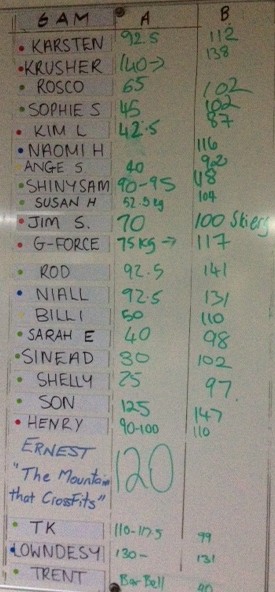 6 AM A B
KARSTEN 92.5 112
KRUSHER 140→ 138
ROSCO 65 102
SOPHIE S 45 102
KIM L 42.5 87
NAOMI H 116
ANGE S. 40
SHINYSAM 90-95 118
SUSAN H 52.5kg 104
JIM S. 70 100 Skiers
G-FORCE 75KG → 117
ROD 92.5 141
NIALL 92.5 131
BILLI 50 110
SARAH E 40 98
SINEAD 30 102
SHELLY 25 97
SON 125 147
HENRY 90-100 110
ERNEST 120
"The Mountain
that CrossFits"
TK 110-117.5 99
LOWNDESY 130- 131
TRENT Bar Bell